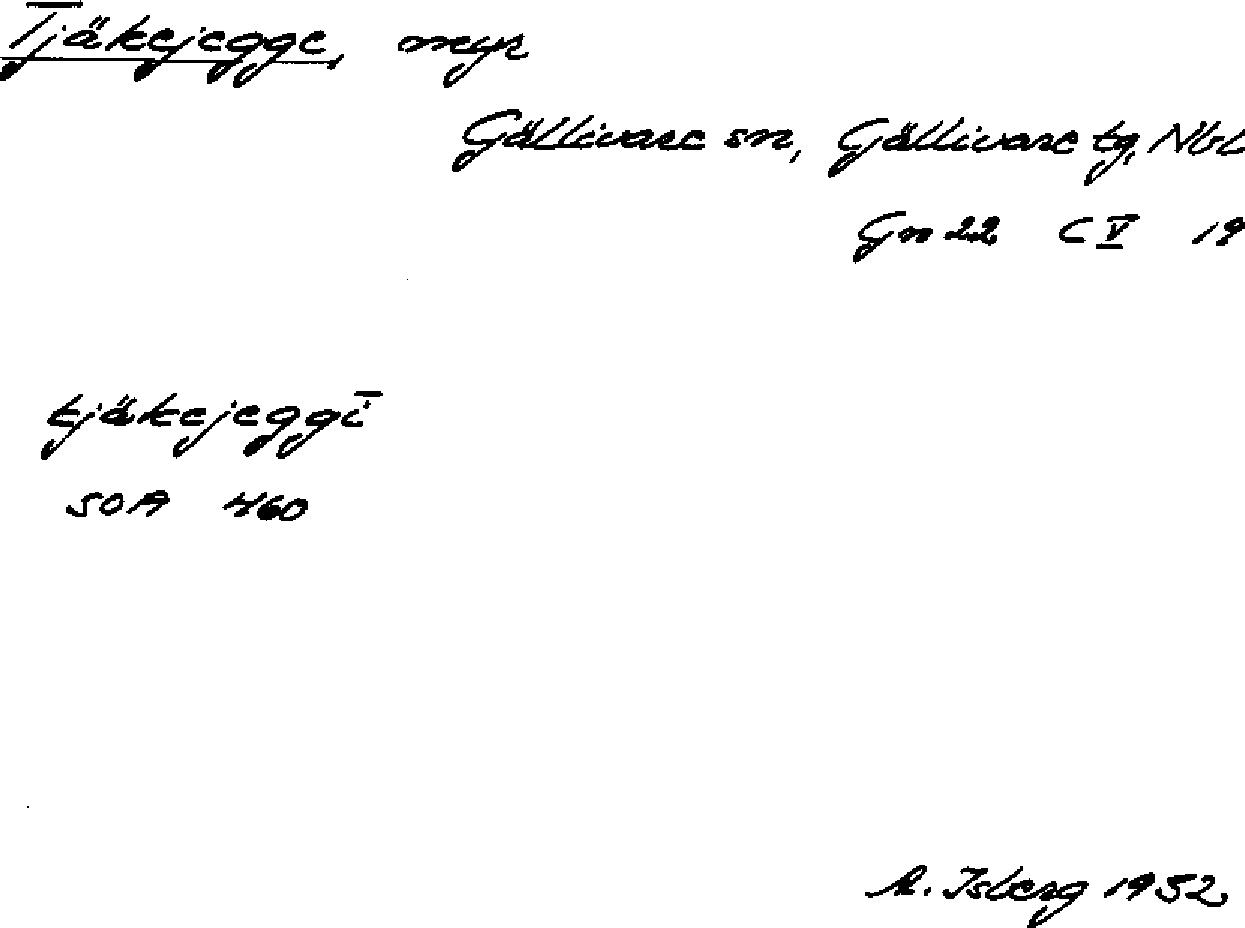 Tjäkejegge, myr
Gällivare sn, Gällivare tg, Nbl
Gn 22 C V 19
tjäkejeggī
SOA 460
A. Isberg 1952